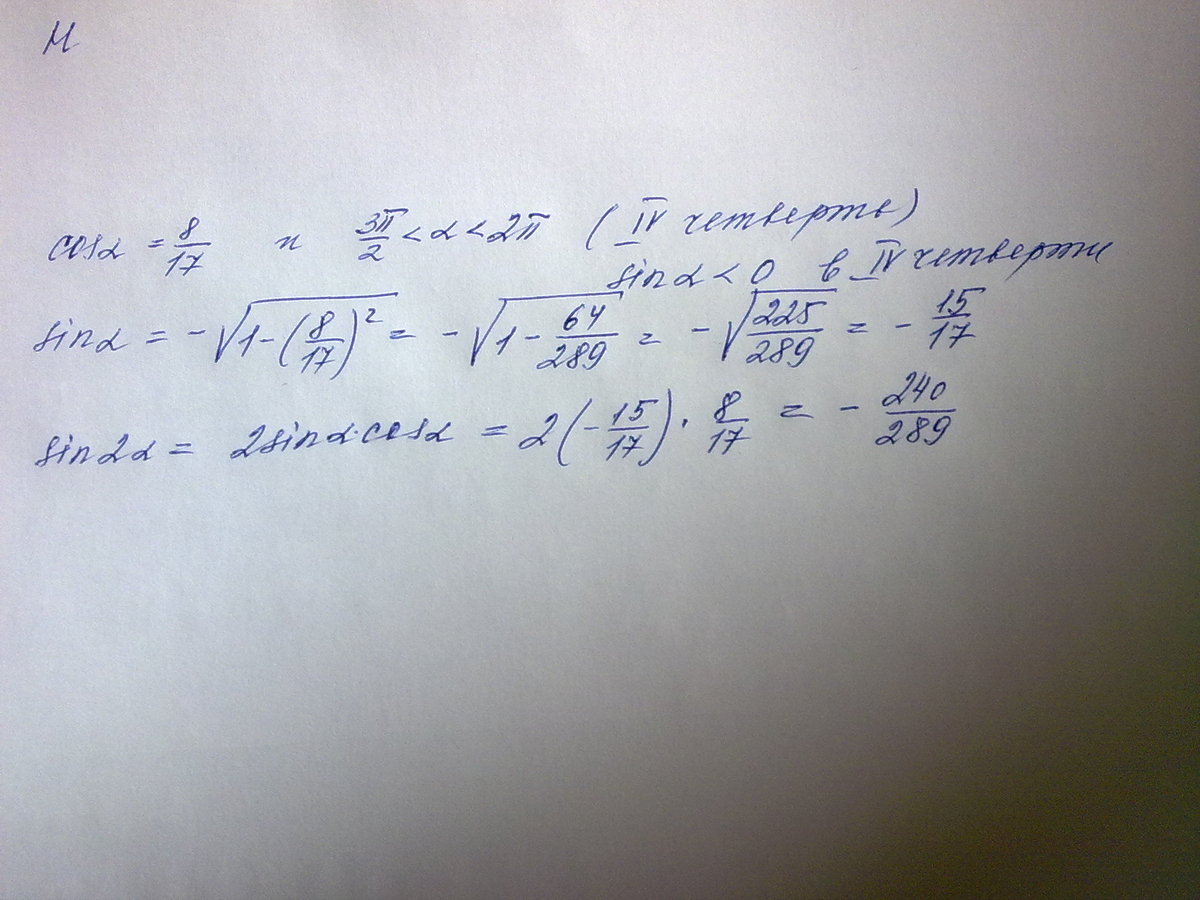 И
cosα = 8/17 и 3π/2 < α < 2π (IV четверть)
sinα < 0 в IV четверти
sinα = -√(1-(8/17)²) = -√(1-64/289) = -√(225/289) = -15/17
sin2α = 2sinα·cosα = 2(-15/17)·8/17 = -240/289